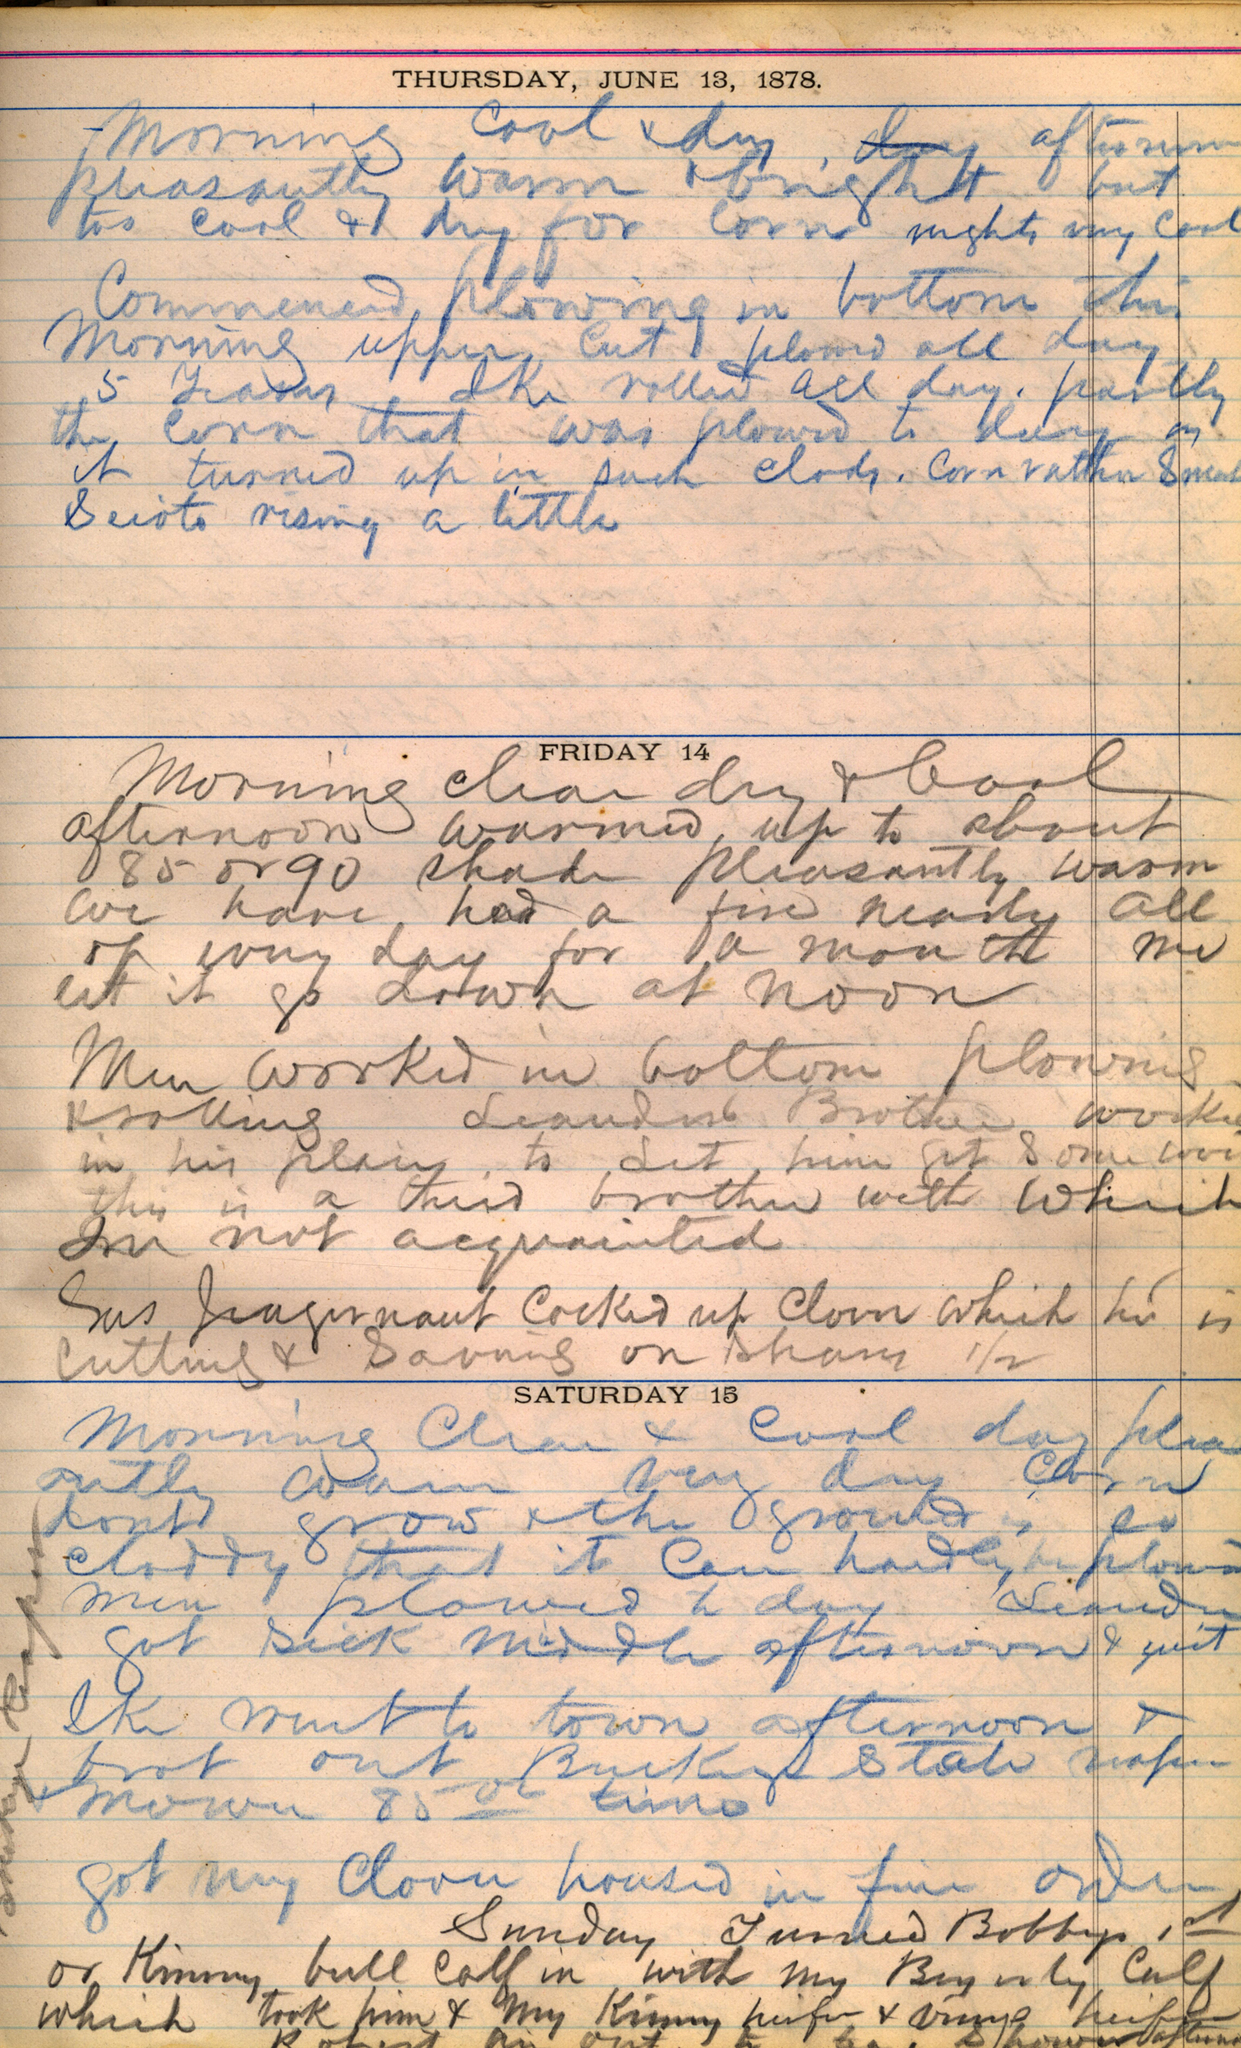 THURSDAY, JUNE 13, 1878.
Morning Cool & dry, day afternoon
pleasantly warm & bright but
too cool & dry for Corn nights very Cool
Commenced plowing in bottom this
Morning upper Cut plowed all day
5 Teams Ike rolled all day. partly
the Corn that was plowed to day as
it turned up in such Clods. Corn rather Small
Scioto rising a little
FRIDAY 14
Morning clear dry & Cool
afternoon warmed up to about
85 or 90 shade pleasantly warm
We have had a fire nearly all
of every day for a month we
let it go down at noon
Men worked in bottom plowing
& rolling Leanders Brother worked
in his place to let him get some
this is a third brother with which
Im not acquainted
Gus Cocked up Clover which he is
Cutting & Saving on Shares 1/2
SATURDAY 15
Morning Clear & Cool day plea
santly warm very dry Corn
dont grow & the ground is so
cloddy that it Can hardly be plowed
Men plowed to day Leander
got sick middle afternoon & quit
Ike went to town afternoon &
brot out Buckeye State reaper
& Mower 85 00 time
got my Clover housed in fine order
Sunday Turned Bobbys 1st
or Kinny bull Calf in with my Calf
which took him & My Kinny heifer & heifer
Robert out to afternoon